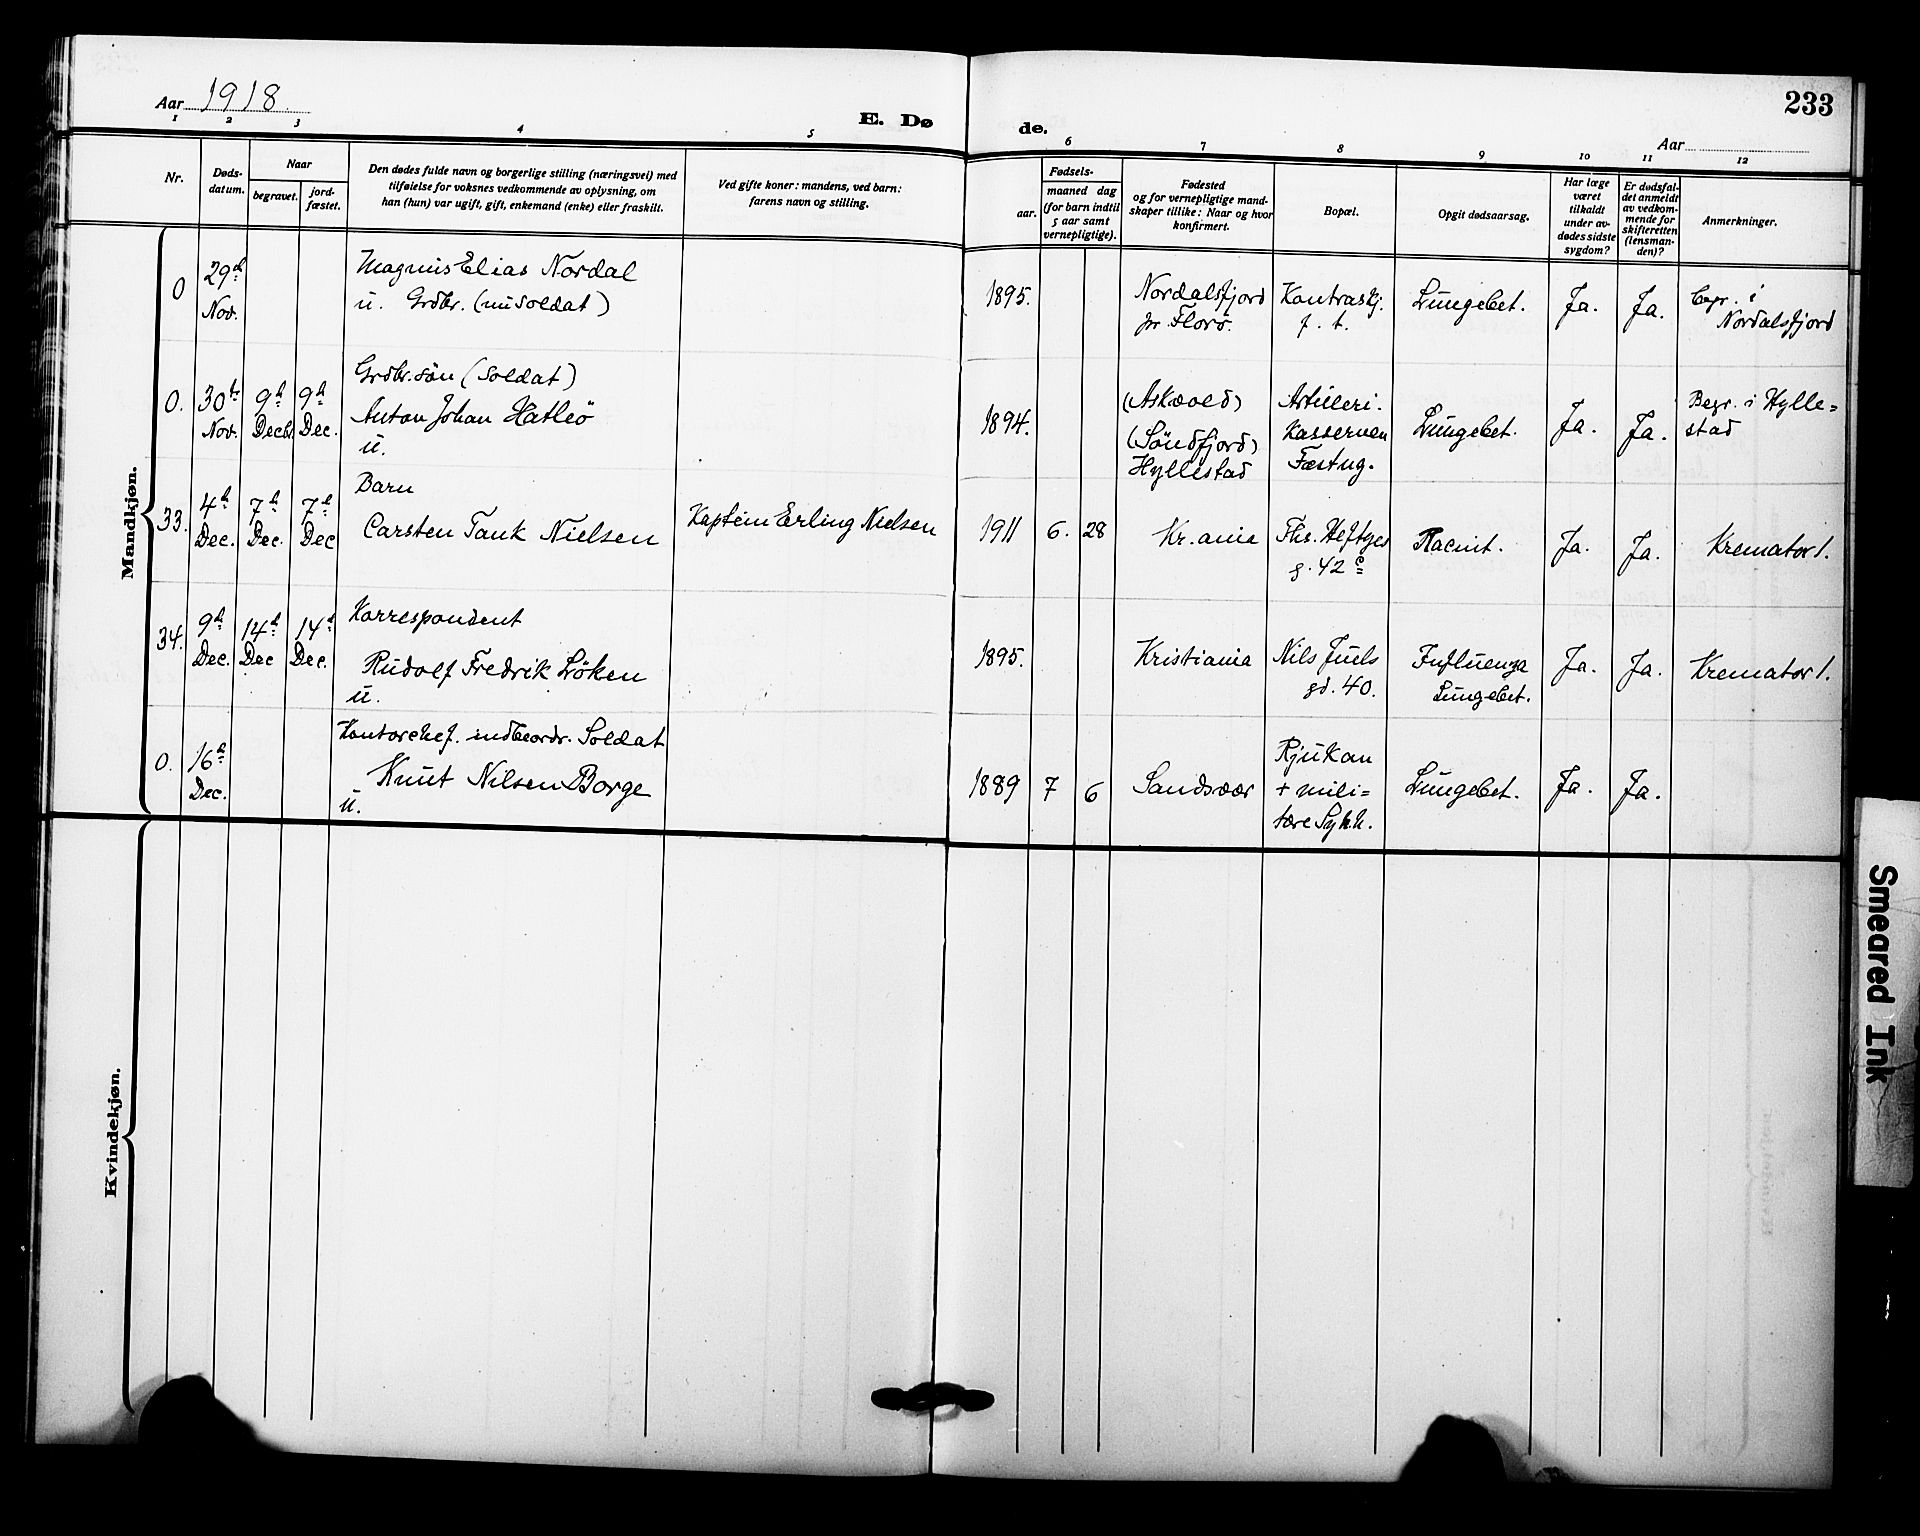 Aar 1918.
E. Døde.
233
Aar
1 2 3 4 5 6 7 8 9 10 11 12
Nr.
Dødsdatum.
Naar
begravet.
jordfæstet.
Den dødes fulde navn og borgerlige stilling (næringsvei) med
tilføielse for voksnes vedkommende av oplysning, om
han (hun) var ugift, gift, enkemand (enke) eller fraskilt.
Ved gifte koner: mandens, ved barn:
farens navn og stilling.
Fødsels-
aar.
maaned dag
(for barn indtil
5 aar samt
vernepligtige).
Fødested
og for vernepligtige mand-
skaper tillike: Naar og hvor
konfirmert.
Bopæl.
Opgit dødsaarsag.
Har læge
været
tilkaldt
under av-
dødes sidste
sygdom?
Er dødsfal-
det anmeldt
av vedkom-
mende for
skifteretten
(lensman-
den)?
Anmerkninger.
Mandkjøn.
0 29d Nov.
Magnus Elias Nordal
u. Grdbr. (nu soldat)
1895.
Nordalsfjord
pr. Florø.
Kontraskj.
f. t.
Lungebet.
Ja.
Ja.
begr. i
Nordalsfjord
0. 30te Nov. 9d Decbr. 9d Dec.
Grdbr. søn (soldat)
Anton Johan Hatleö
u.
1894.
(Askvold)
(Söndfjord)
Hyllestad
Artilleri.
Kasernen
Fæstng.
Lungebet.
Ja.
Ja.
Begr. i Hylle=
stad
33. 4d Dec. 7d Dec. 7d Dec
Barn
Carsten Tank Nielsen
Kaptein Erling Nielsen
1911 6. 28
Kr.ania
Ths. Heftyes
g. 42 c
Racint.
Ja.
Ja.
Kremator 1.
34. 9d Dec. 14d Dec 14d Dec.
Korrespondent
Rudolf Fredrik Löken
u.
1895.
Kristiania
Nils Juels
gd. 40.
Influenza
Lungebet.
Ja.
Ja.
Kremator 1.
0. 16d Dec.
Kontorchef. indbeordr. Soldat
Knut Nilsen Borge
u.
1889 7 6
Sandsvær
Rjukan
+ mili=
tære Sykh.
Lungebet.
Ja.
Ja.
Kvindekjøn.
Smeared Ink